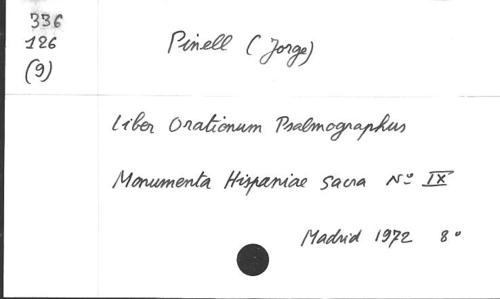 336
126
(9)
Pinell (Jorge)
Liber Orationum Psalmographus
Monumenta Hispaniae Sacra Nº IX
Madrid 1972 8º